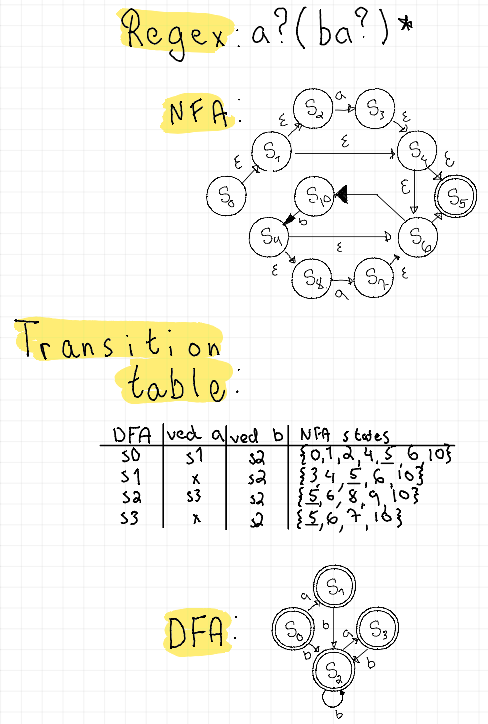 Regex: a?(ba?)*
NFA:
S2 a S3
ε ε
S1 ε S4 ε
ε ε
S0 S10 S5
b
S9 ε S6
ε S8 a S7 ε
Transition
table:
DFA ved a ved b NFA states
s0 s1 s2 {0,1,2,4,5,6,10}
s1 x s2 {3,4,5,6,10}
s2 s3 s2 {5,6,8,9,10}
s3 x s2 {5,6,7,10}
DFA:
S1
a b
S0 a S3
b b
S2
b